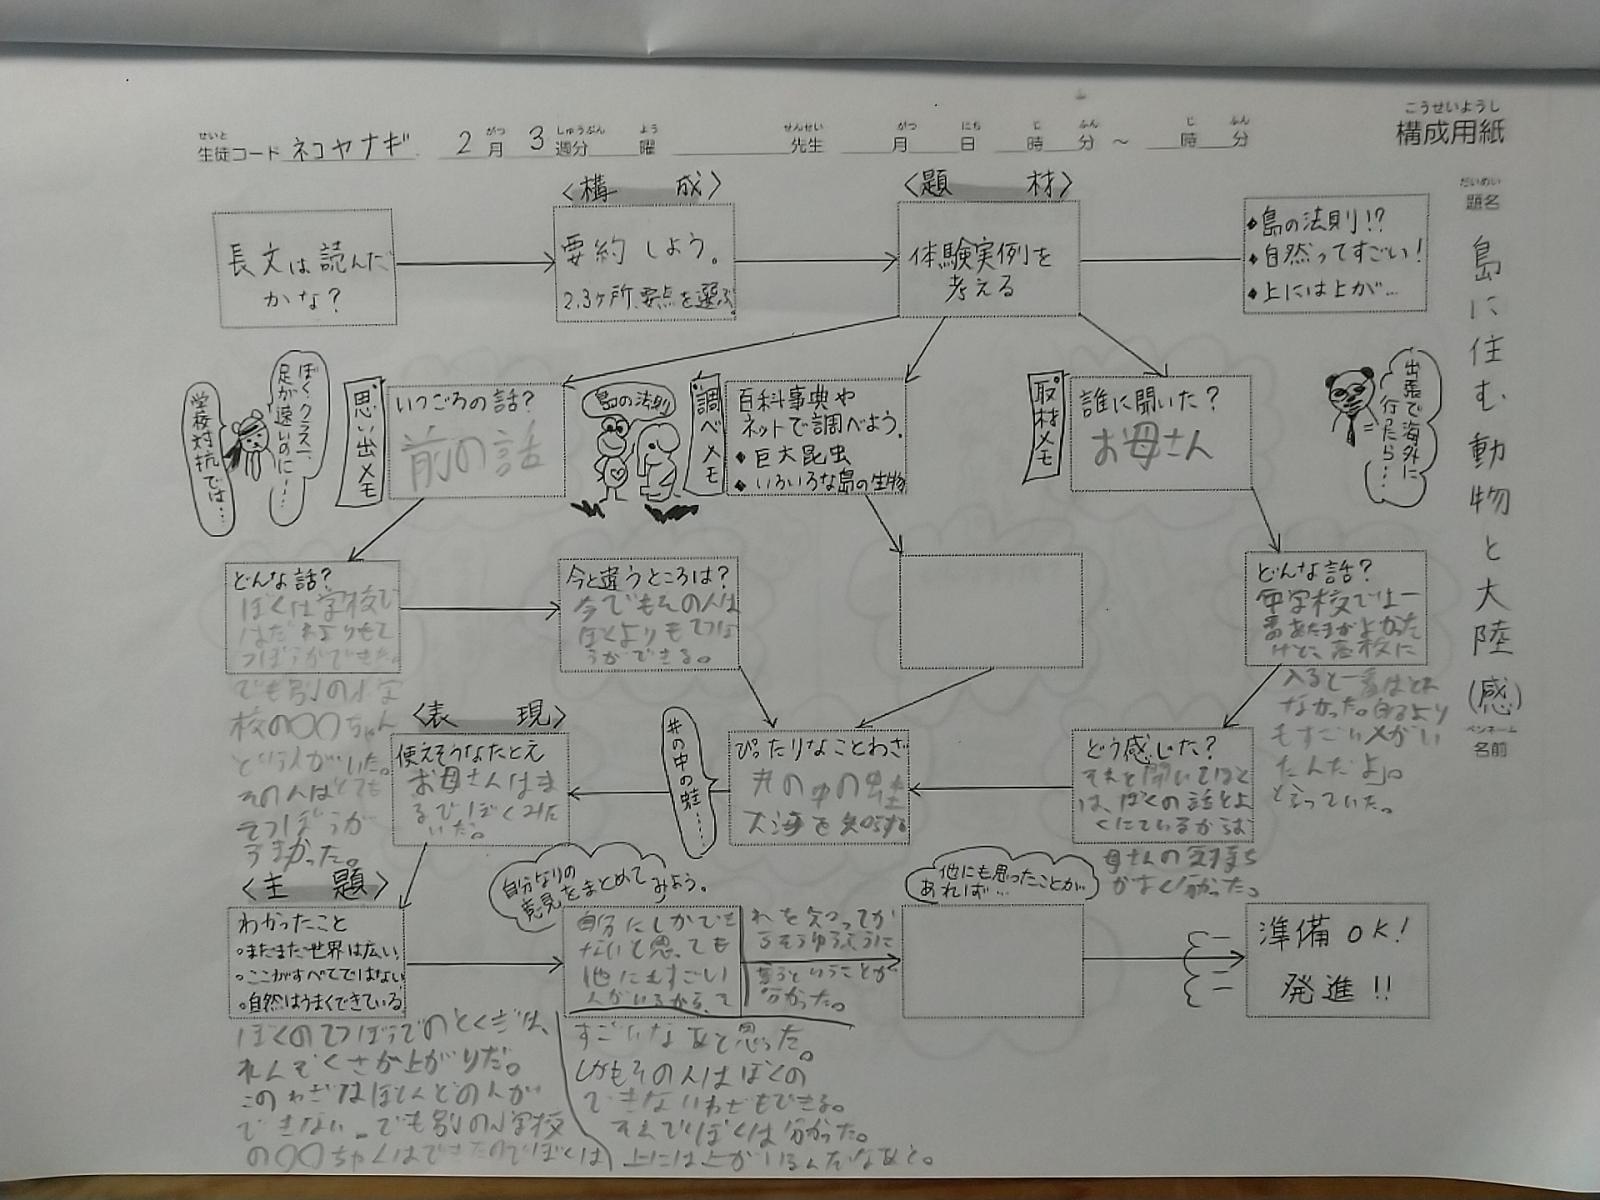 こうせいようし
構成用紙
せいと
生徒コード ネコヤナギ 2月 3週分 曜 先生 月 日 時 分 〜 時 分
がつ しゅうぶん よう せんせい がつ にち じ ふん じ ふん
だいめい
題名
島に住む動物と大陸(感)
ペンネーム
名前
長文は読んだ
かな?
〈構 成〉
要約しよう。
2.3ヶ所、要点を選ぶ。
〈題 材〉
体験実例を
考える
◆島の法則!?
◆自然ってすごい!
◆上には上が…
ぼく、クラス一、
足が速いのに……
学校対抗では…
思い出メモ
いつごろの話?
前の話
島の法則
調べメモ
百科事典や
ネットで調べよう。
◆巨大昆虫
◆いろいろな島の生物
取材メモ
誰に聞いた?
お母さん
出張で海外に
行ったら…
どんな話?
ぼくは学校で
はだれよりもて
つぼうができた。
でも別の小学
校の〇〇ちゃん
という人がいた。
その人はとても
てつぼうが
うまかった。
今と違うところは?
今でもその人は
ぼくよりもてつぼ
うができる。
どんな話?
中学校では一
番あたまがよかった
けど、高校に
入ると一番はとれ
なかった。自分より
もすごい人がい
たんだよ」。
と言っていた。
〈表 現〉
使えそうなたとえ
お母さんはま
るでぼくみた
いだ。
井の中の蛙……
ぴったりなことわざ
井の中の蛙
大海を知らず
どう感じた?
それを聞いてぼく
は、ぼくの話とよ
くにているからお
母さんの気持ち
がよく分かった。
〈主 題〉
わかったこと
◦まだまだ世界は広い
◦ここがすべてではない
◦自然はうまくできている
自分なりの
意見をまとめて
みよう。
自分にしかでき
ないと思っても
他にもすごい
人がいるから、そ
れを知ってか
らそうゆうふうに
言うということが
分かった。
他にも思ったことが
あれば…
準備OK!
発進!!
ぼくのてつぼうでのとくぎは、
れんぞくさか上がりだ。
このわざはほとんどの人が
できない。でも別の小学校
の〇〇ちゃんはできたのでぼくは
すごいなあと思った。
しかもその人はぼくの
できないわざもできる。
それでぼくは分かった。
上には上がいるんだなあと。